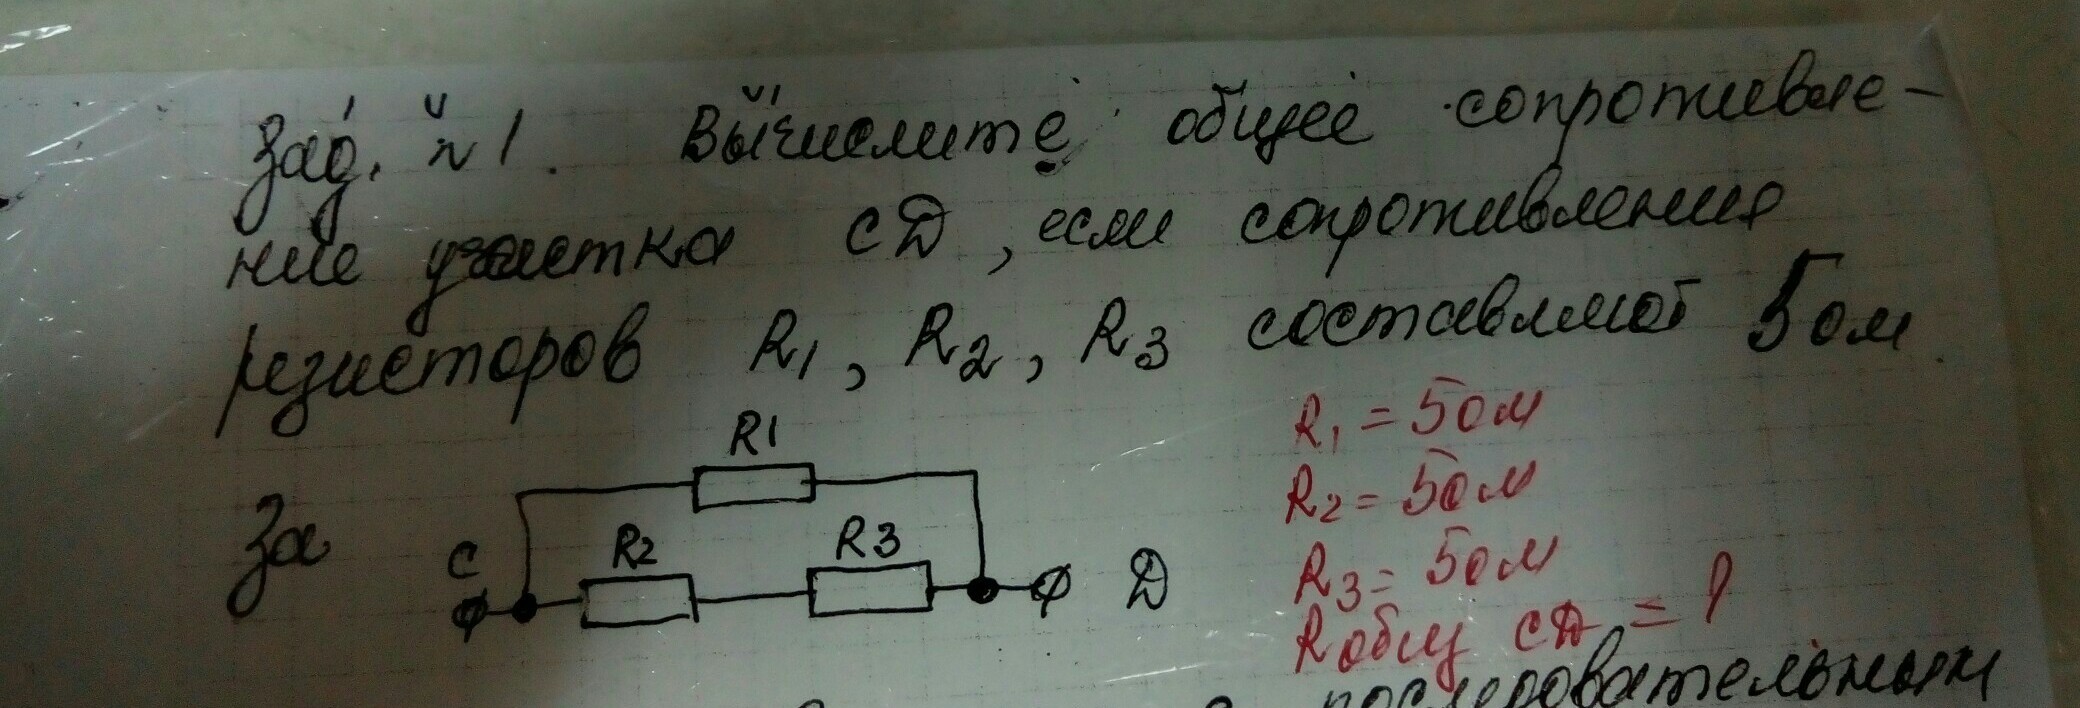 Зад. №1. Вычислите общее сопротивле-
ние участка СД, если сопротивления
резисторов R1, R2, R3 составляют 5 ом.
R1 = 5 ом
R1
R2 = 5 ом
За
С
R2
R3
Д
R3 = 5 ом
Rобщ СД = ?
последовательном